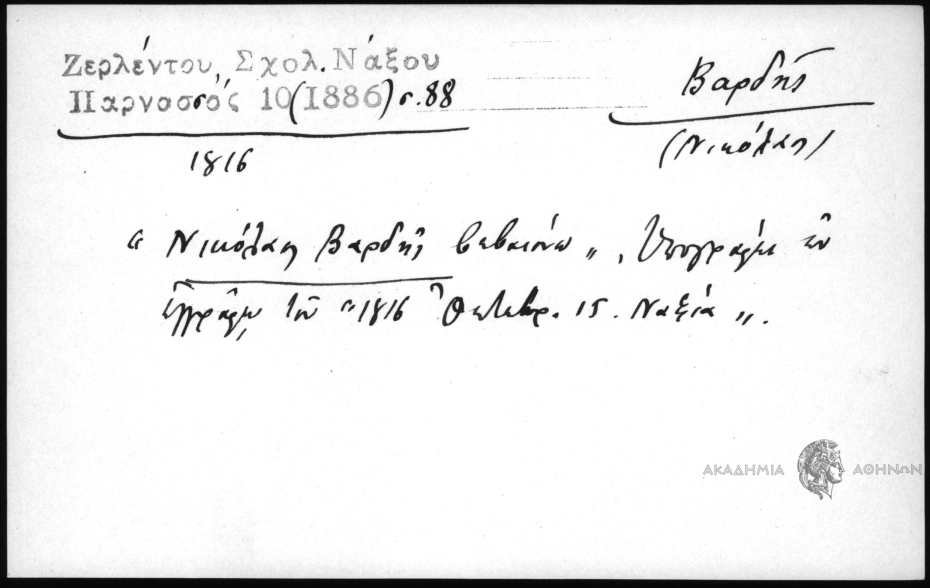 Ζερλέντου, Σχολ. Νάξου
Παρνασσός 10 (1886) σ. 88
Βαρδῆς
(Νικόλαος)
1816
" Νικόλαος Βαρδῆς βεβαιόνω ", Ὑπογραφὴ ἐν
ἐγγράφῳ τοῦ " 1816 Ὀκτωβρ. 15. Ναξία ".
ΑΚΑΔΗΜΙΑ ΑΘΗΝΩΝ